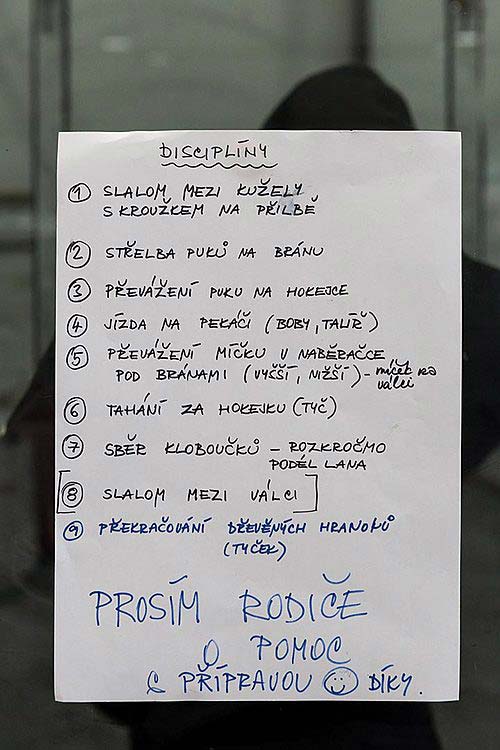 DISCIPLÍNY
① SLALOM MEZI KUŽELY
S KROUŽKEM NA PŘILBĚ
② STŘELBA PUKŮ NA BRÁNU
③ PŘEVÁŽENÍ PUKU NA HOKEJCE
④ JÍZDA NA PEKÁČI (BOBY, TALÍŘ)
⑤ PŘEVÁŽENÍ MÍČKU V NABĚRAČCE
POD BRÁNAMI (VYŠŠÍ, NIŽŠÍ) - míček na
válci
⑥ TAHÁNÍ ZA HOKEJKU (TYČ)
⑦ SBĚR KLOBOUČKŮ - ROZKROČMO
PODÉL LANA
[⑧ SLALOM MEZI VÁLCI]
⑨ PŘEKRAČOVÁNÍ DŘEVĚNÝCH HRANOLŮ
(TYČEK)
PROSÍM RODIČE
O POMOC
S PŘÍPRAVOU ☺ DÍKY.